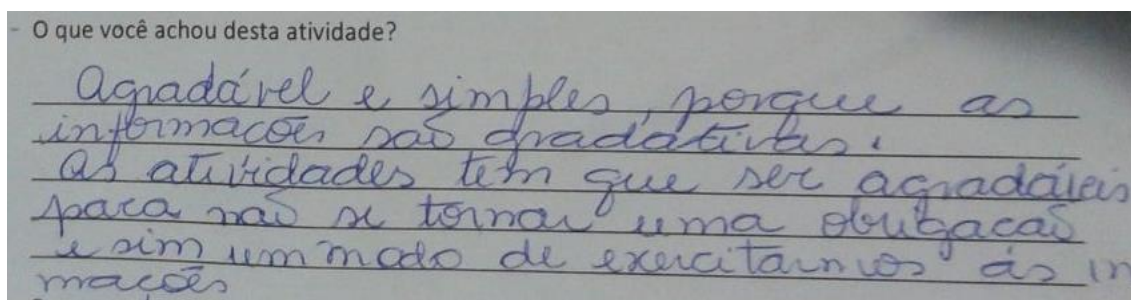 - O que você achou desta atividade?
Agradável e simples, porque as
informacões são gradátivas.
As atividades tem que ser agradáveis
para não se tornar uma obrigacão
e sim um modo de exercitarmos ás in
macões